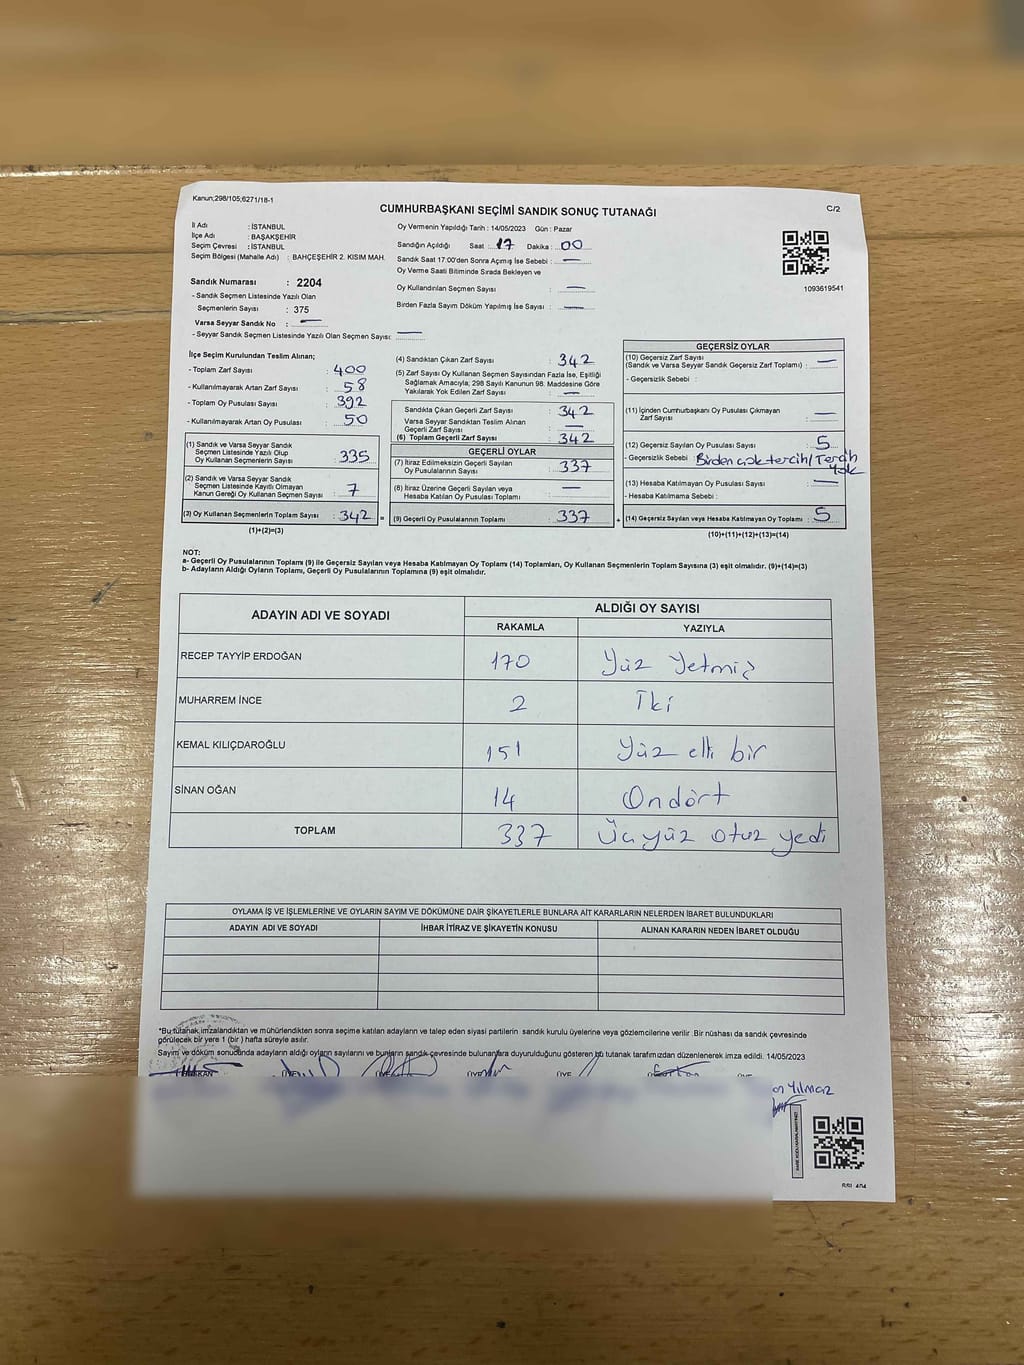 Kanun;298/105;6271/18-1
C/2
CUMHURBAŞKANI SEÇİMİ SANDIK SONUÇ TUTANAĞI
İl Adı : İSTANBUL
İlçe Adı : BAŞAKŞEHİR
Seçim Çevresi : İSTANBUL
Seçim Bölgesi (Mahalle Adı) : BAHÇEŞEHİR 2. KISIM MAH.
Sandık Numarası : 2204
- Sandık Seçmen Listesinde Yazılı Olan
Seçmenlerin Sayısı : 375
Varsa Seyyar Sandık No : —
- Seyyar Sandık Seçmen Listesinde Yazılı Olan Seçmen Sayısı: —
Oy Vermenin Yapıldığı Tarih : 14/05/2023 Gün : Pazar
Sandığın Açıldığı Saat : 17 Dakika : 00
Sandık Saat 17:00'den Sonra Açımış İse Sebebi : —
Oy Verme Saati Bitiminde Sırada Bekleyen ve
Oy Kullandırılan Seçmen Sayısı : —
Birden Fazla Sayım Döküm Yapılmış İse Sayısı : —
1093619541
İlçe Seçim Kurulundan Teslim Alınan;
- Toplam Zarf Sayısı : 400
- Kullanılmayarak Artan Zarf Sayısı : 58
- Toplam Oy Pusulası Sayısı : 392
- Kullanılmayarak Artan Oy Pusulası : 50
(1) Sandık ve Varsa Seyyar Sandık
Seçmen Listesinde Yazılı Olup
Oy Kullanan Seçmenlerin Sayısı : 335
(2) Sandık ve Varsa Seyyar Sandık
Seçmen Listesinde Kayıtlı Olmayan
Kanun Gereği Oy Kullanan Seçmen Sayısı : 7
(3) Oy Kullanan Seçmenlerin Toplam Sayısı : 342 =
(1)+(2)=(3)
(4) Sandıktan Çıkan Zarf Sayısı : 342
(5) Zarf Sayısı Oy Kullanan Seçmen Sayısından Fazla İse, Eşitliği
Sağlamak Amacıyla, 298 Sayılı Kanunun 98. Maddesine Göre
Yakılarak Yok Edilen Zarf Sayısı : —
Sandıkta Çıkan Geçerli Zarf Sayısı : 342
Varsa Seyyar Sandıktan Teslim Alınan
Geçerli Zarf Sayısı : —
(6) Toplam Geçerli Zarf Sayısı : 342
GEÇERLİ OYLAR
(7) İtiraz Edilmeksizin Geçerli Sayılan
Oy Pusulalarının Sayısı : 337
(8) İtiraz Üzerine Geçerli Sayılan veya
Hesaba Katılan Oy Pusulası Toplamı : —
(9) Geçerli Oy Pusulalarının Toplamı : 337 +
GEÇERSİZ OYLAR
(10) Geçersiz Zarf Sayısı
(Sandık ve Varsa Seyyar Sandık Geçersiz Zarf Toplamı) : —
- Geçersizlik Sebebi :
(11) İçinden Cumhurbaşkanı Oy Pusulası Çıkmayan
Zarf Sayısı : —
(12) Geçersiz Sayılan Oy Pusulası Sayısı : 5
- Geçersizlik Sebebi : Birden çok tercih/Tercih
yok
(13) Hesaba Katılmayan Oy Pusulası Sayısı : —
- Hesaba Katılmama Sebebi :
(14) Geçersiz Sayılan veya Hesaba Katılmayan Oy Toplamı : 5
(10)+(11)+(12)+(13)=(14)
NOT:
a- Geçerli Oy Pusulalarının Toplamı (9) ile Geçersiz Sayılan veya Hesaba Katılmayan Oy Toplamı (14) Toplamları, Oy Kullanan Seçmenlerin Toplam Sayısına (3) eşit olmalıdır. (9)+(14)=(3)
b- Adayların Aldığı Oyların Toplamı, Geçerli Oy Pusulalarının Toplamına (9) eşit olmalıdır.
ADAYIN ADI VE SOYADI ALDIĞI OY SAYISI
RAKAMLA YAZIYLA
RECEP TAYYİP ERDOĞAN 170 Yüz Yetmiş
MUHARREM İNCE 2 İki
KEMAL KILIÇDAROĞLU 151 Yüz elli bir
SİNAN OĞAN 14 Ondört
TOPLAM 337 Üçyüz otuz yedi
OYLAMA İŞ VE İŞLEMLERİNE VE OYLARIN SAYIM VE DÖKÜMÜNE DAİR ŞİKAYETLERLE BUNLARA AİT KARARLARIN NELERDEN İBARET BULUNDUKLARI
ADAYIN ADI VE SOYADI İHBAR İTİRAZ VE ŞİKAYETİN KONUSU ALINAN KARARIN NEDEN İBARET OLDUĞU
*Bu tutanak,imzalandıktan ve mühürlendikten sonra seçime katılan adayların ve talep eden siyasi partilerin sandık kurulu üyelerine veya gözlemcilerine verilir .Bir nüshası da sandık çevresinde
görülecek bir yere 1 (bir ) hafta süreyle asılır.
Sayım ve döküm sonucunda adayların aldığı oyların sayılarını ve bunların sandık çevresinde bulunanlara duyurulduğunu gösteren bu tutanak tarafımızdan düzenlenerek imza edildi. 14/05/2023
BAŞKAN ÜYE ÜYE ÜYE ÜYE
Yılmaz